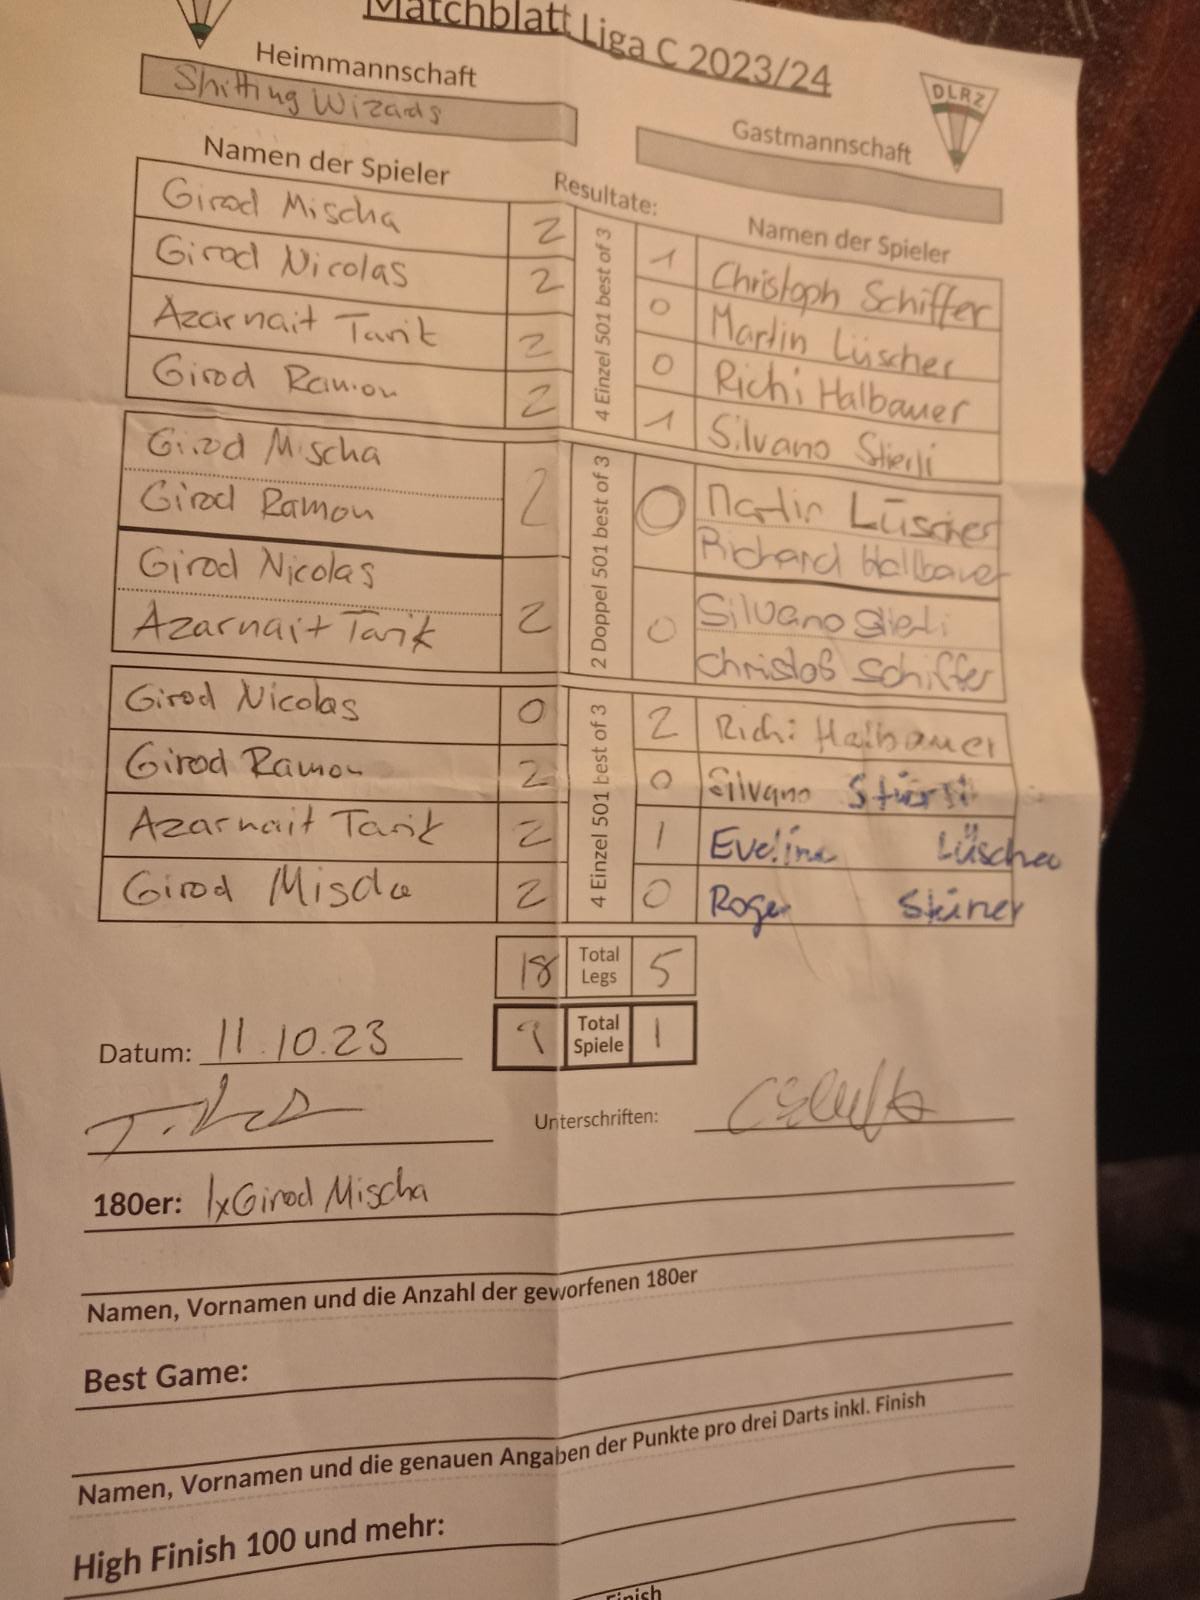 Matchblatt Liga C 2023/24
DLRZ
Heimmannschaft
Shitting Wizards
Gastmannschaft
Namen der Spieler
Resultate:
Namen der Spieler
4 Einzel 501 best of 3
Girod Mischa 2 1 Christoph Schiffer
Girod Nicolas 2 0 Martin Lüscher
Azarnait Tarik 2 0 Richi Halbauer
Girod Ramon 2 1 Silvano Stierli
2 Doppel 501 best of 3
Girod Mischa 2 0 Martin Lüscher
Girod Ramon Richard Halbauer
Girod Nicolas 2 0 Silvano Stierli
Azarnait Tarik Christof Schiffer
4 Einzel 501 best of 3
Girod Nicolas 0 2 Richi Halbauer
Girod Ramon 2 0 Silvano
Azarnait Tarik 2 1 Eveline Lüscher
Girod Mischa 2 0 Roger
18 Total Legs 5
9 Total Spiele 1
Datum: 11.10.23
Unterschriften:
180er: 1x Girod Mischa
Namen, Vornamen und die Anzahl der geworfenen 180er
Best Game:
Namen, Vornamen und die genauen Angaben der Punkte pro drei Darts inkl. Finish
High Finish 100 und mehr:
Finish